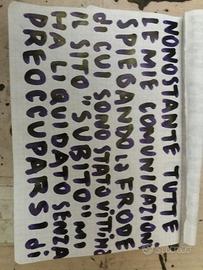 NONOSTANTE TUTTE
LE MIE COMUNICAZIONI
SPIEGANDO LA FRODE
di CUI SONO STATO VITTIMA
IL SITO "SUBITO" MI
HA LIQUIDATO SENZA
PREOCCUPARSI di